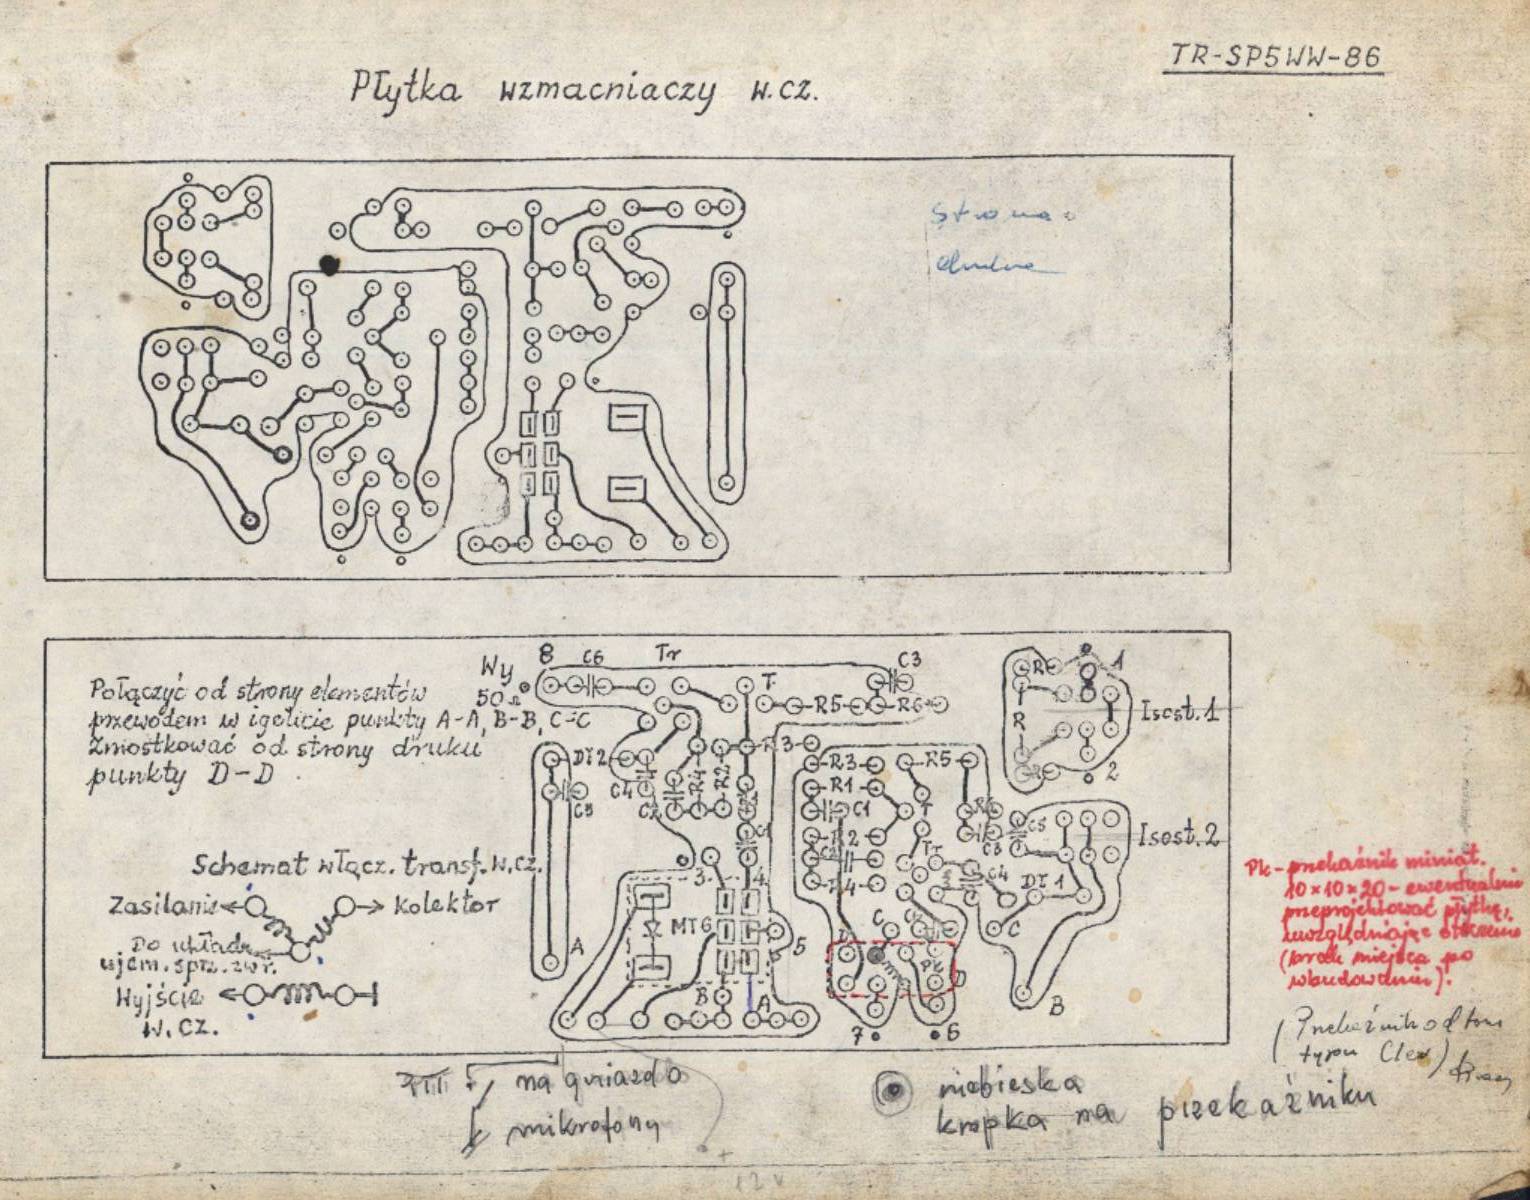 TR-SP5WW-86
Płytka wzmacniaczy w.cz.
Strona
druku
Połączyć od strony elementów
przewodem w igelicie punkty A-A, B-B, C-C
Zmostkować od strony druku
punkty D-D
Wy
50Ω
8
C6
Tr
T
C3
R5
R6
R3
DŁ2
C4
C5
C2
R4
R2
C1
3
4
MT6
5
A
B
A
R3
R5
R1
C1
T
R2
C2
R4
Tr
C3
C5
C4
DŁ1
C
C
D
Pk
D
7
6
B
R
1
R
R
2
Isost.1
Isost.2
Schemat włącz. transf. w.cz.
Zasilanie
Kolektor
Do układu
ujem. sprz. zwr.
Wyjście
w.cz.
Pk - przekaźnik miniat.
10×10×20 - ewentualnie
przeprojektować płytkę,
uwzględniając
(brak miejsca po
wbudowaniu).
(Przekaźnik od
typu
na gniazdo
mikrofony
niebieska
kropka na przekaźniku
12V